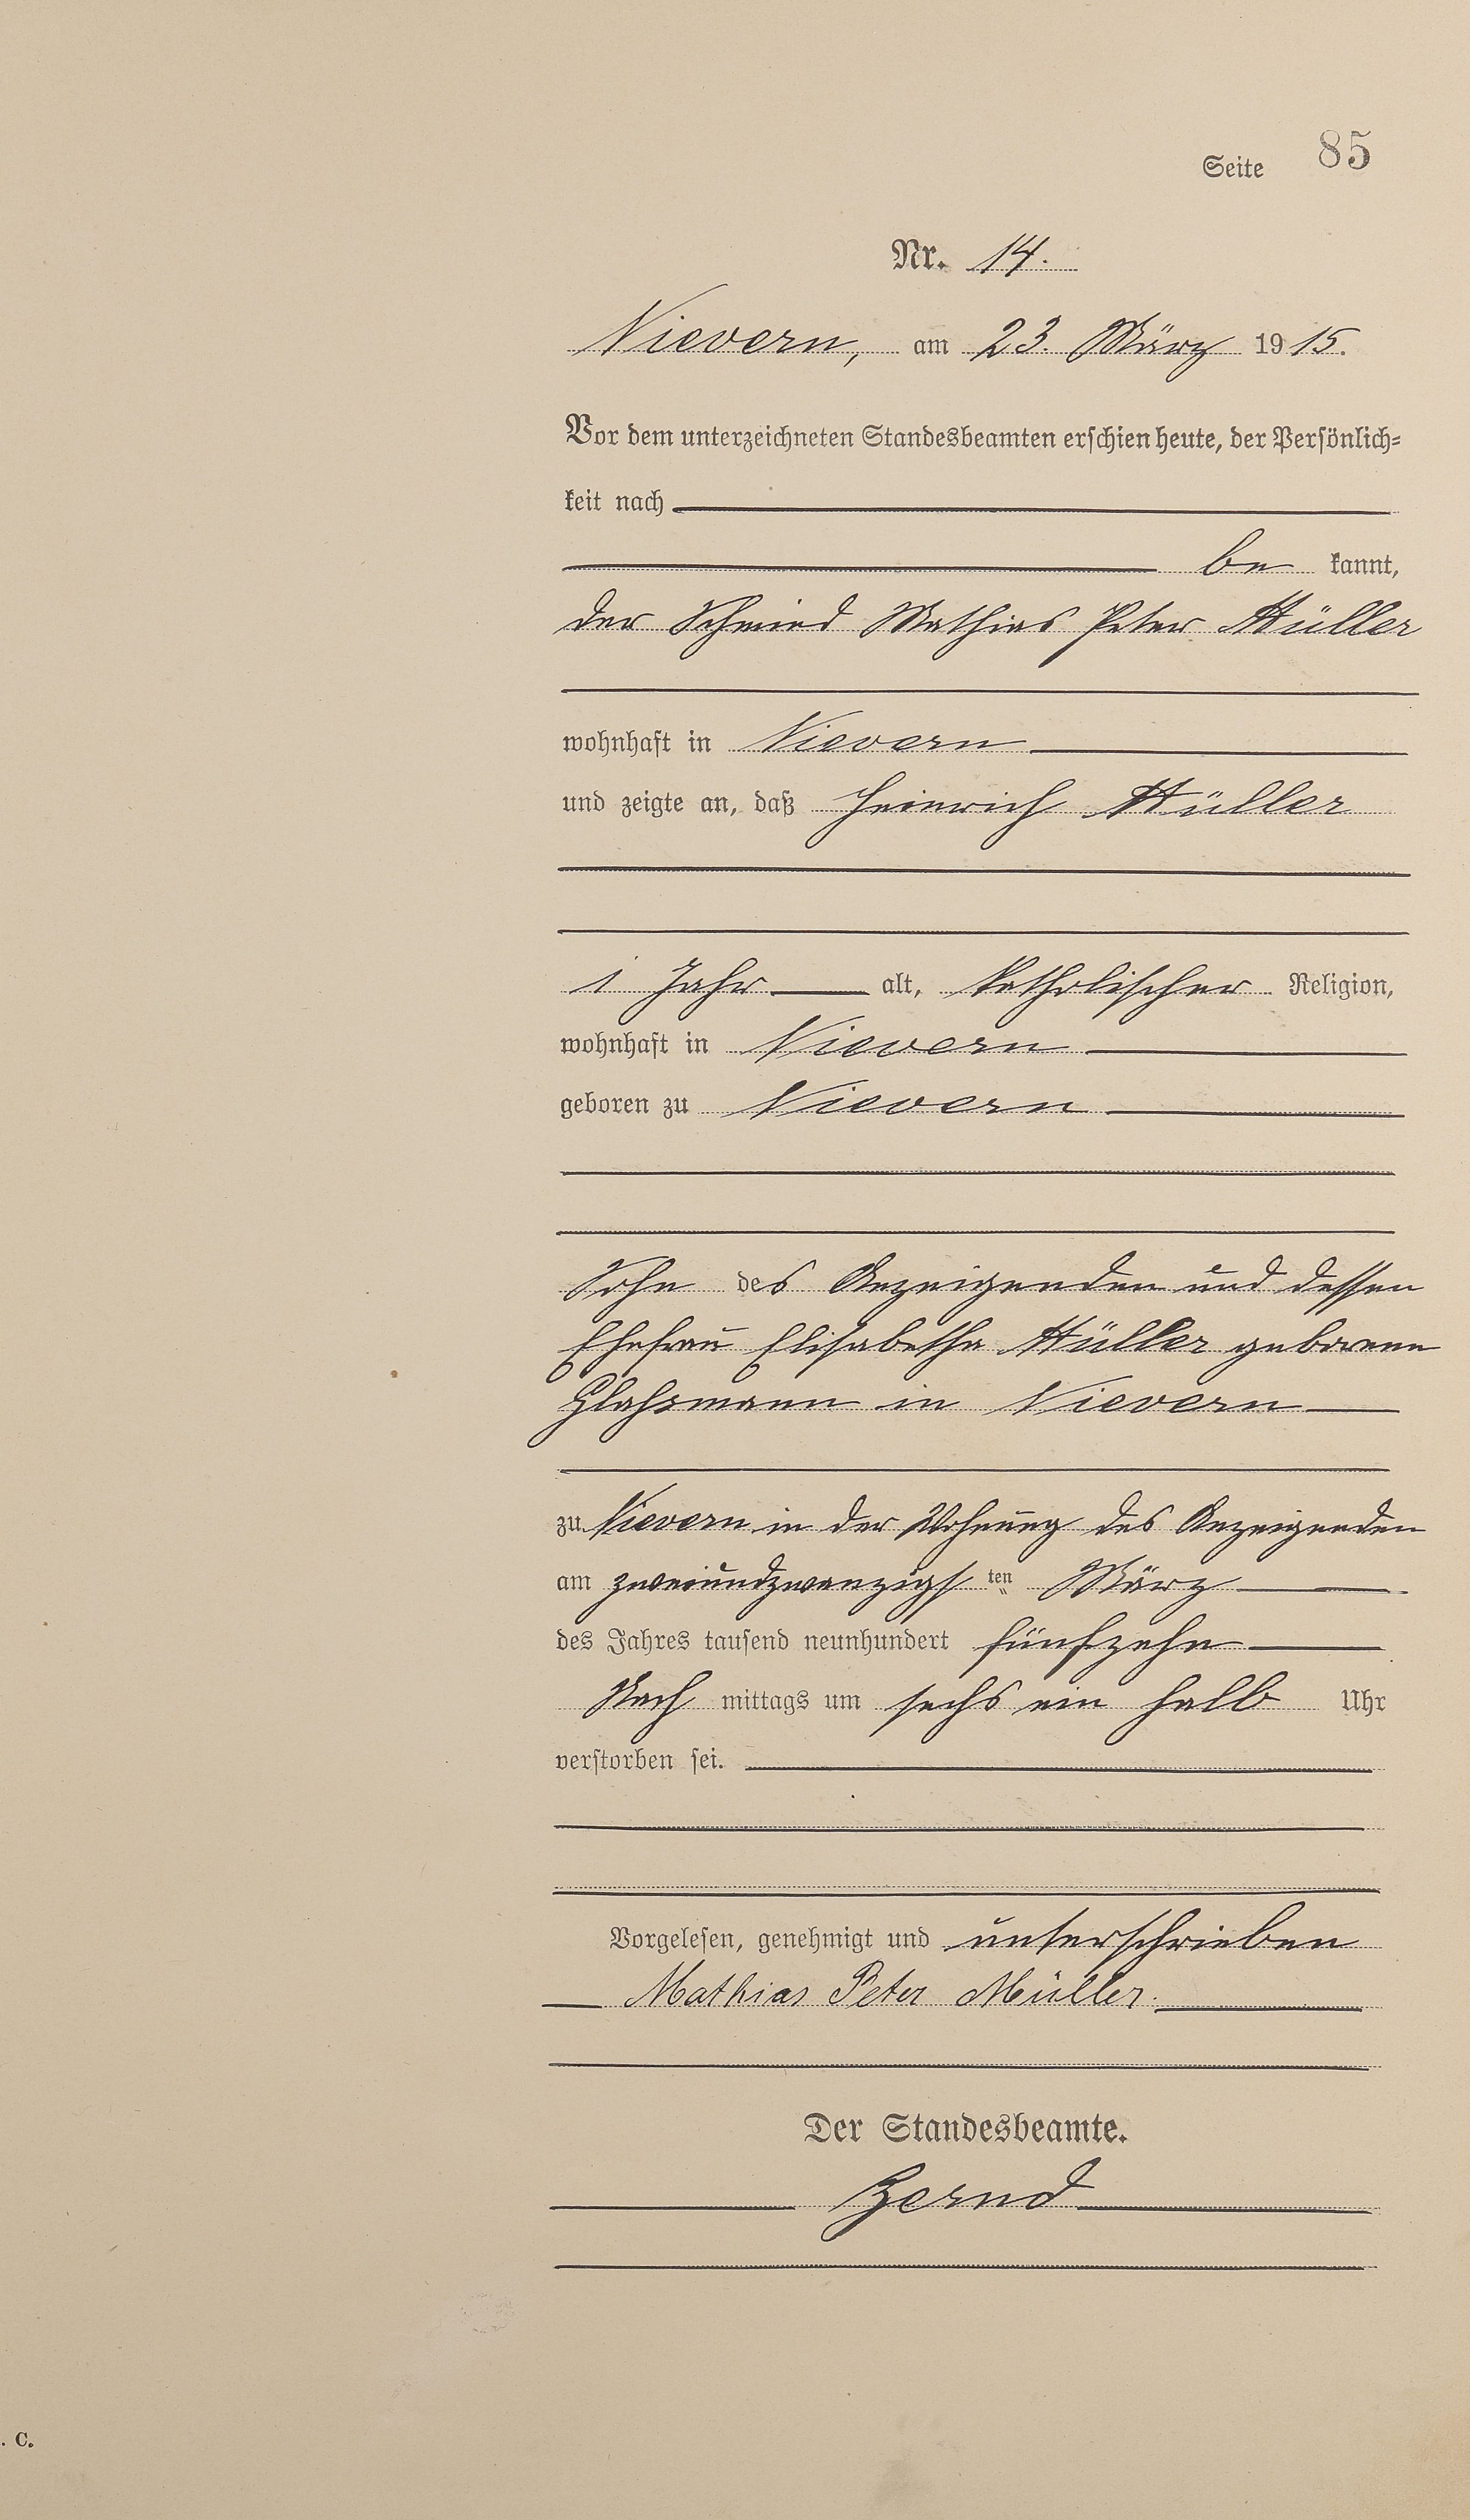 Seite 85
Nr. 14.
Nievern, am 23. März 1915.
Vor dem unterzeichneten Standesbeamten erschien heute, der Persönlich=
keit nach
be kannt,
der Schmied Mathias Peter Müller
wohnhaft in Nievern
und zeigte an, daß Heinrich Müller
1 Jahr alt, katholischer Religion,
wohnhaft in Nievern
geboren zu Nievern
Sohn des Anzeigenden und dessen
Ehefrau Elisabetha Müller geborene
Glaßmann in Nievern
zu Nievern in der Wohnung des Anzeigenden
am zweiundzwanzigs ten März
des Jahres tausend neunhundert fünfzehn
Nach mittags um sechs ein halb Uhr
verstorben sei.
Vorgelesen, genehmigt und unterschrieben
Mathias Peter Müller.
Der Standesbeamte.
Zernd
. C.